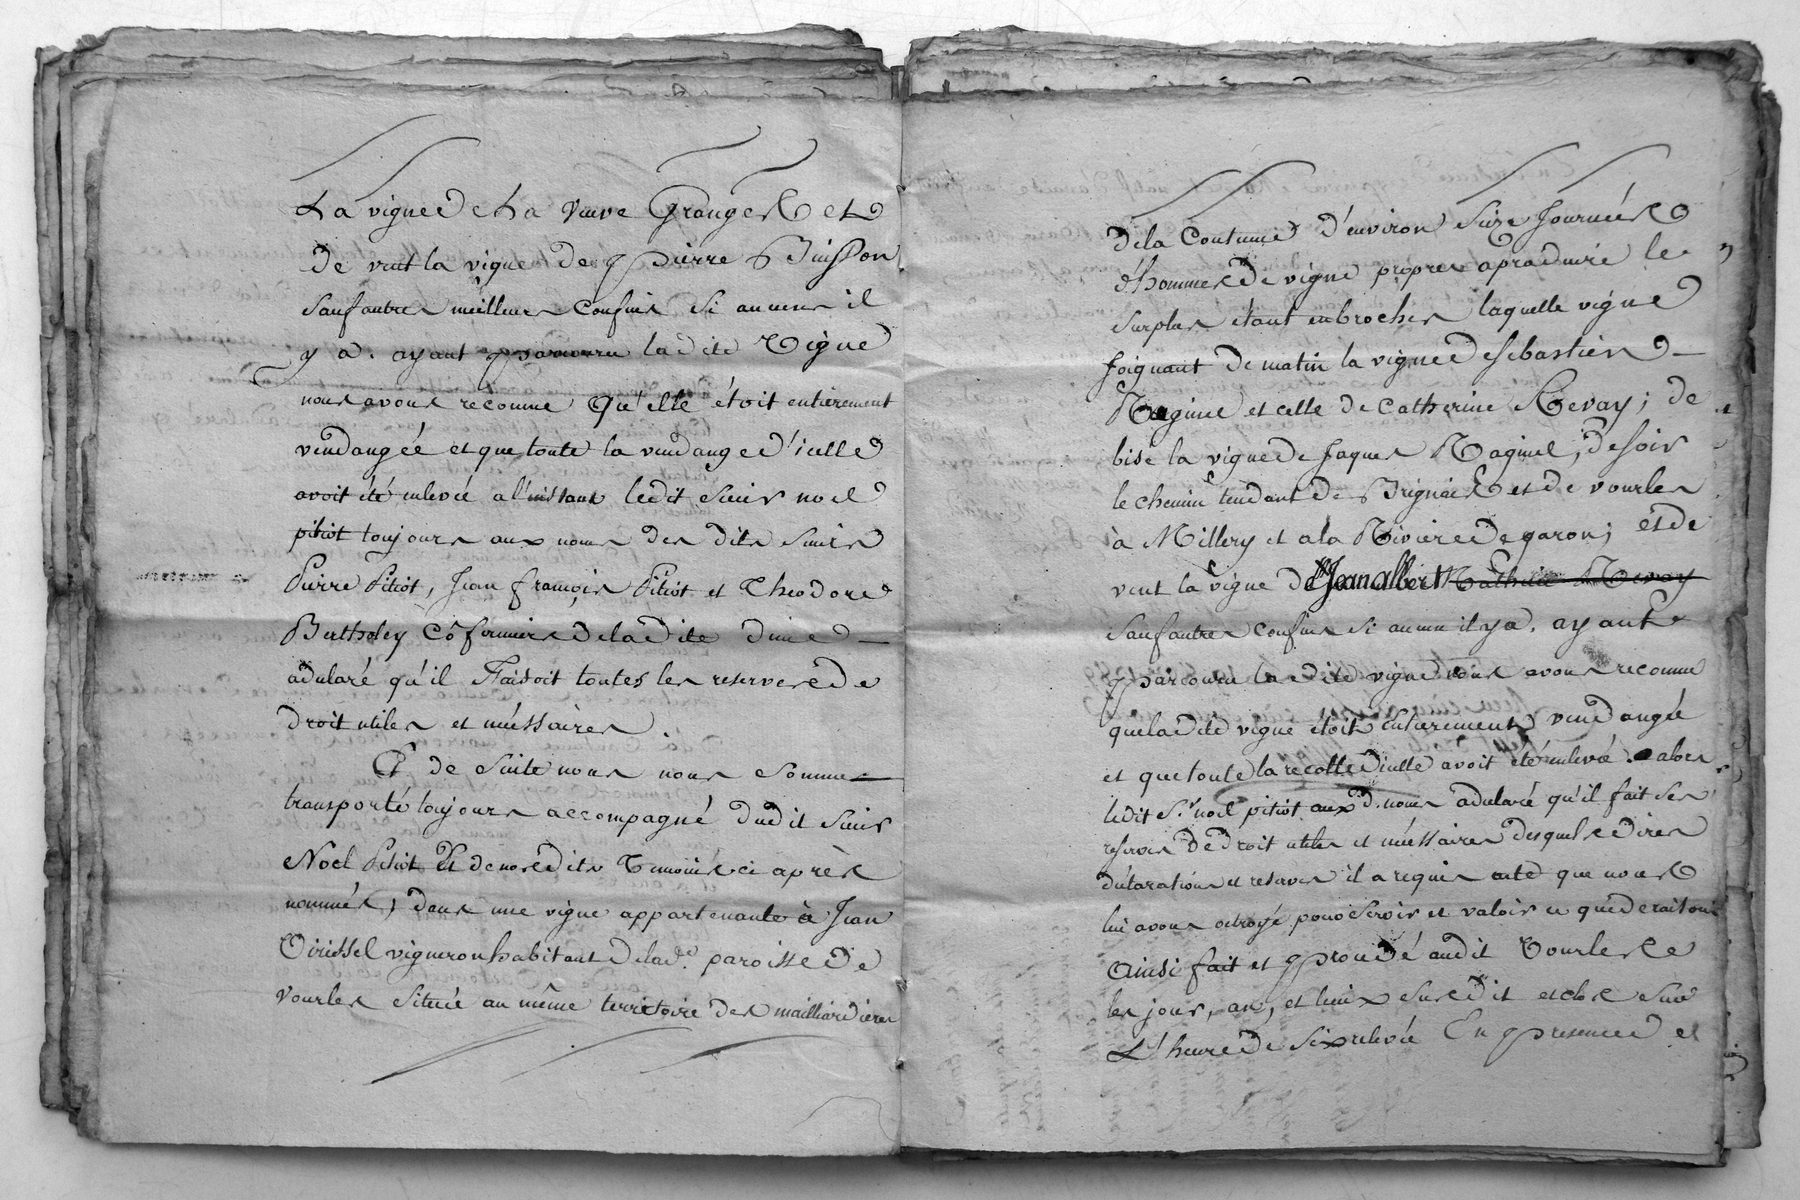 La vigne de la veuve Granger et
de vent la vigne de pierre Buisson
sauf autres meilleurs confins si aucuns il
y a. ayant parcouru ladite Vigne
nous avons reconnu qu'elle étoit entierement
vendangée et que toute la vendange d'icelle
avoit été enlevée a l'instant ledit sieur noel
pitiot toujours aux noms des dits sieurs
Pierre Pitiot, Jean françois Pitiot et Theodore
Bertholey Cofermiers de ladite dime
a declaré qu'il faisoit toutes les reserves de
droit utiles et nécéssaires.
Et de suite nous nous sommes
transporté toujours accompagné dudit sieur
Noel Pitiot et de nosedits Temoins ci après
nommés, dans une vigne appartenante à Jean
vigneron habitant de lad.e paroisse de
vourles située au même territoire des mailliardieres
de la Contenue d'environ Seize Journées
d'hommes de vigne propres a produire le
surplus étant en broches laquelle vigne
joignant de matin la vigne de sebastien
et celle de Catherine Revay; de
bise la vigne de Jaques Raginel, de soir
le chemin tendant de Brignais et de vourles
à Millery et a la Riviere de garon; et de
vent la vigne de Jean Albert Revay
sauf autres confins si aucun il y a. ayant
parcouru ladite vigne nous avons reconnu
que ladite vigne étoit entierement vendangée
et que toute la recolte d'icelle avoit été enlevée. alors
ledit S.r noel pitiot aux d. noms a declaré qu'il fait ses
reserves de droit utiles et nécéssaires desquels dires
déclarations et reserves il a requis acte que nous
lui avons octroyé pour servir et valoir ce que de raison
Ainsi fait et procedé audit Vourles
les jour, an, et lieux susdit et clos sur
L'heure de six relevée En presence de